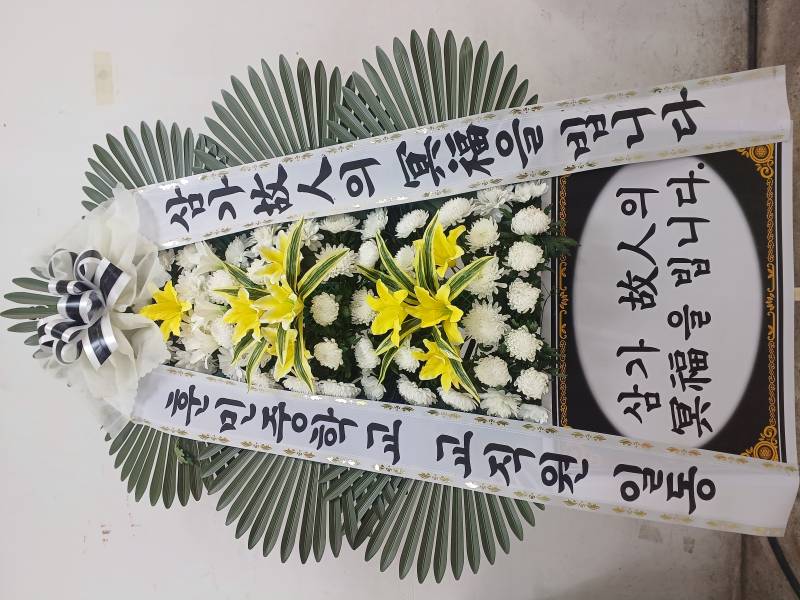 삼가 故人의 冥福을 빕니다
훈민중학교 교직원 일동
삼가 故人의
冥福을 빕니다.